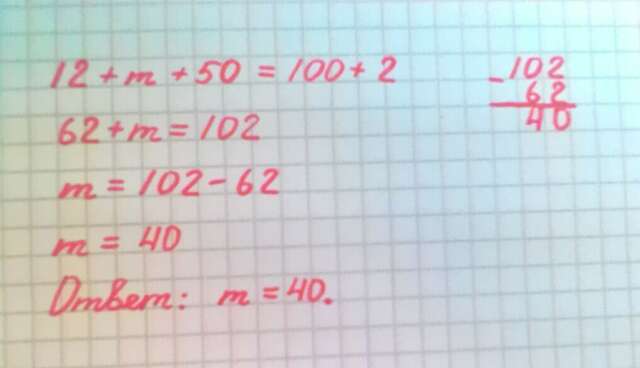 12 + m + 50 = 100 + 2
62 + m = 102
m = 102 - 62
m = 40
Ответ: m = 40.
- 102
62
40